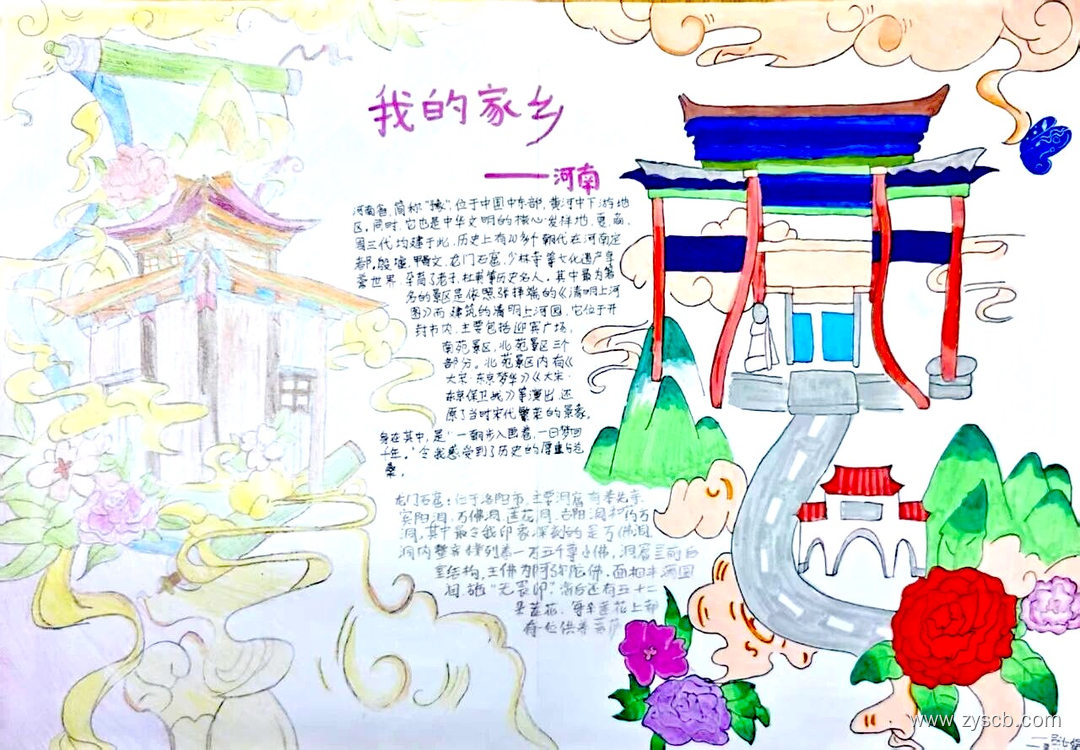 我的家乡
——河南
河南省,简称"豫",位于中国中东部,黄河中下游地
区,同时,它也是中华文明的核心发祥地,夏、商、
周三代均建于此,历史上有20多个朝代在河南定
都,殷墟,甲骨文,龙门石窟,少林寺等文化遗产享
誉世界,孕育了老子,杜甫等历史名人。其中最为著
名的景区是依照张择端的《清明上河
图》而建筑的清明上河园,它位于开
封市内,主要包括迎宾广场,
南苑景区,北苑景区三个
部分。北苑景区内有《
大宋·东京梦华》《大宋·
东京保卫战》等演出,还
原了当时宋代繁荣的景象。
身在其中,是"一朝步入画卷,一日梦回
千年。"令我感受到了历史的厚重与沧
桑。
龙门石窟,位于洛阳市,主要洞窟有奉先寺,
宾阳洞,万佛洞,莲花洞,古阳洞
洞,其中最令我印象深刻的是万佛洞,
洞内整齐排列着一万五千尊小佛,洞窟呈前后
室结构,主佛为阿弥陀佛,面相丰满圆
润,施"无畏印",背后还有五十二
朵莲花,每朵莲花上都
有一位供养菩萨
www.zyscb.com